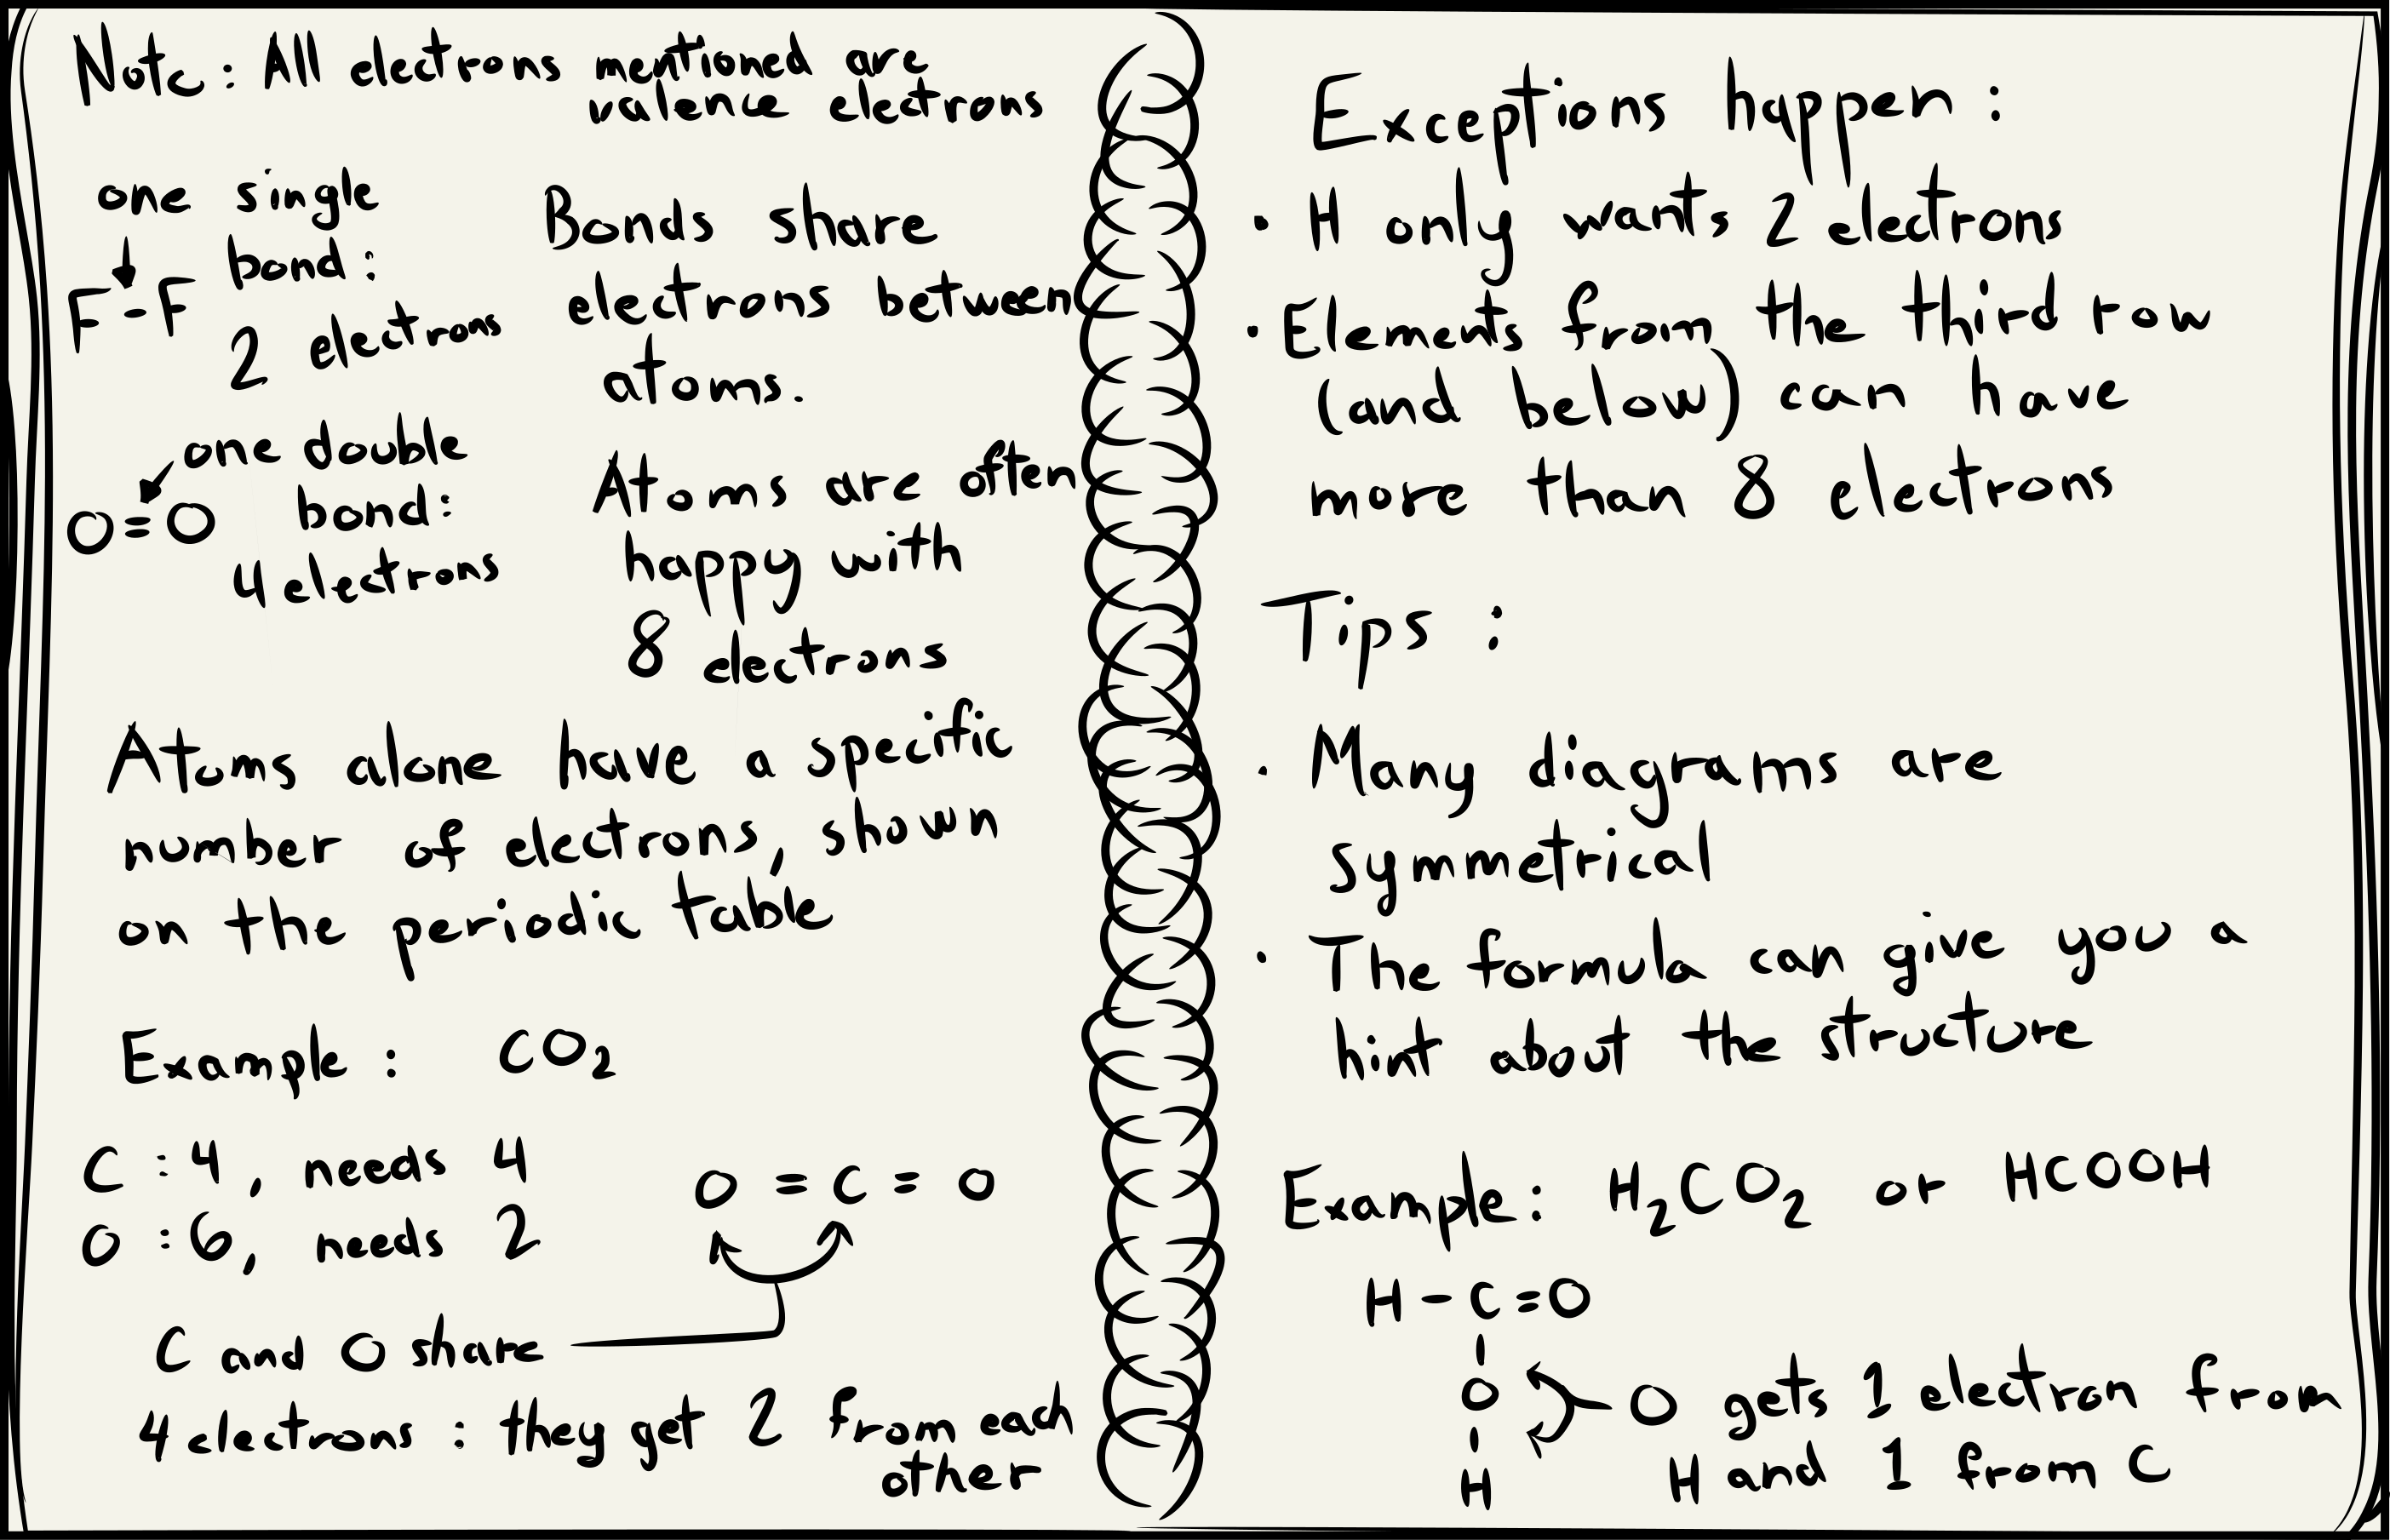 Note : All electrons mentioned are
valence electrons
one single
bond :
F - F
2 electrons
one double
bond :
O = O
4 electrons
Bonds share
electrons between
atoms.
Atoms are often
happy with
8 electrons
Atoms alone have a specific
number of electrons, shown
on the periodic table
Example : CO₂
C : 4, needs 4
O : 6, needs 2
O = C = O
C and O share
4 electrons : they get 2 from each
other
Exceptions happen :
· H only wants 2 electrons
· Elements from the third row
(and below) can have
more than 8 electrons
Tips :
· Many diagrams are
symmetrical
· The formula can give you a
hint about the structure
Example : H₂CO₂ or HCOOH
H - C = O
|
O
|
H
O gets 1 electron from
H and 1 from C